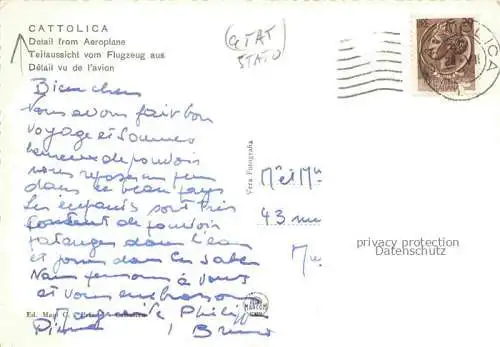 CATTOLICA
Detail from Aeroplane
Teilaussicht vom Flugzeug aus
Détail vu de l'avion
(GTAT
STATO
CATTOLICA
Bien chers
Nous avons fait bon
voyage et sommes
heureux de pouvoir
nous reposer un peu
dans ce beau pays
Les enfants sont très
content de pouvoir
patauger dans l'eau
et jouer dans les sable
Nous pensons à vous
et vous embrassons
Philippe
Bruno
Vera Fotografia
Mr et Mme
43 rue
privacy protection
Datenschutz
Ed.